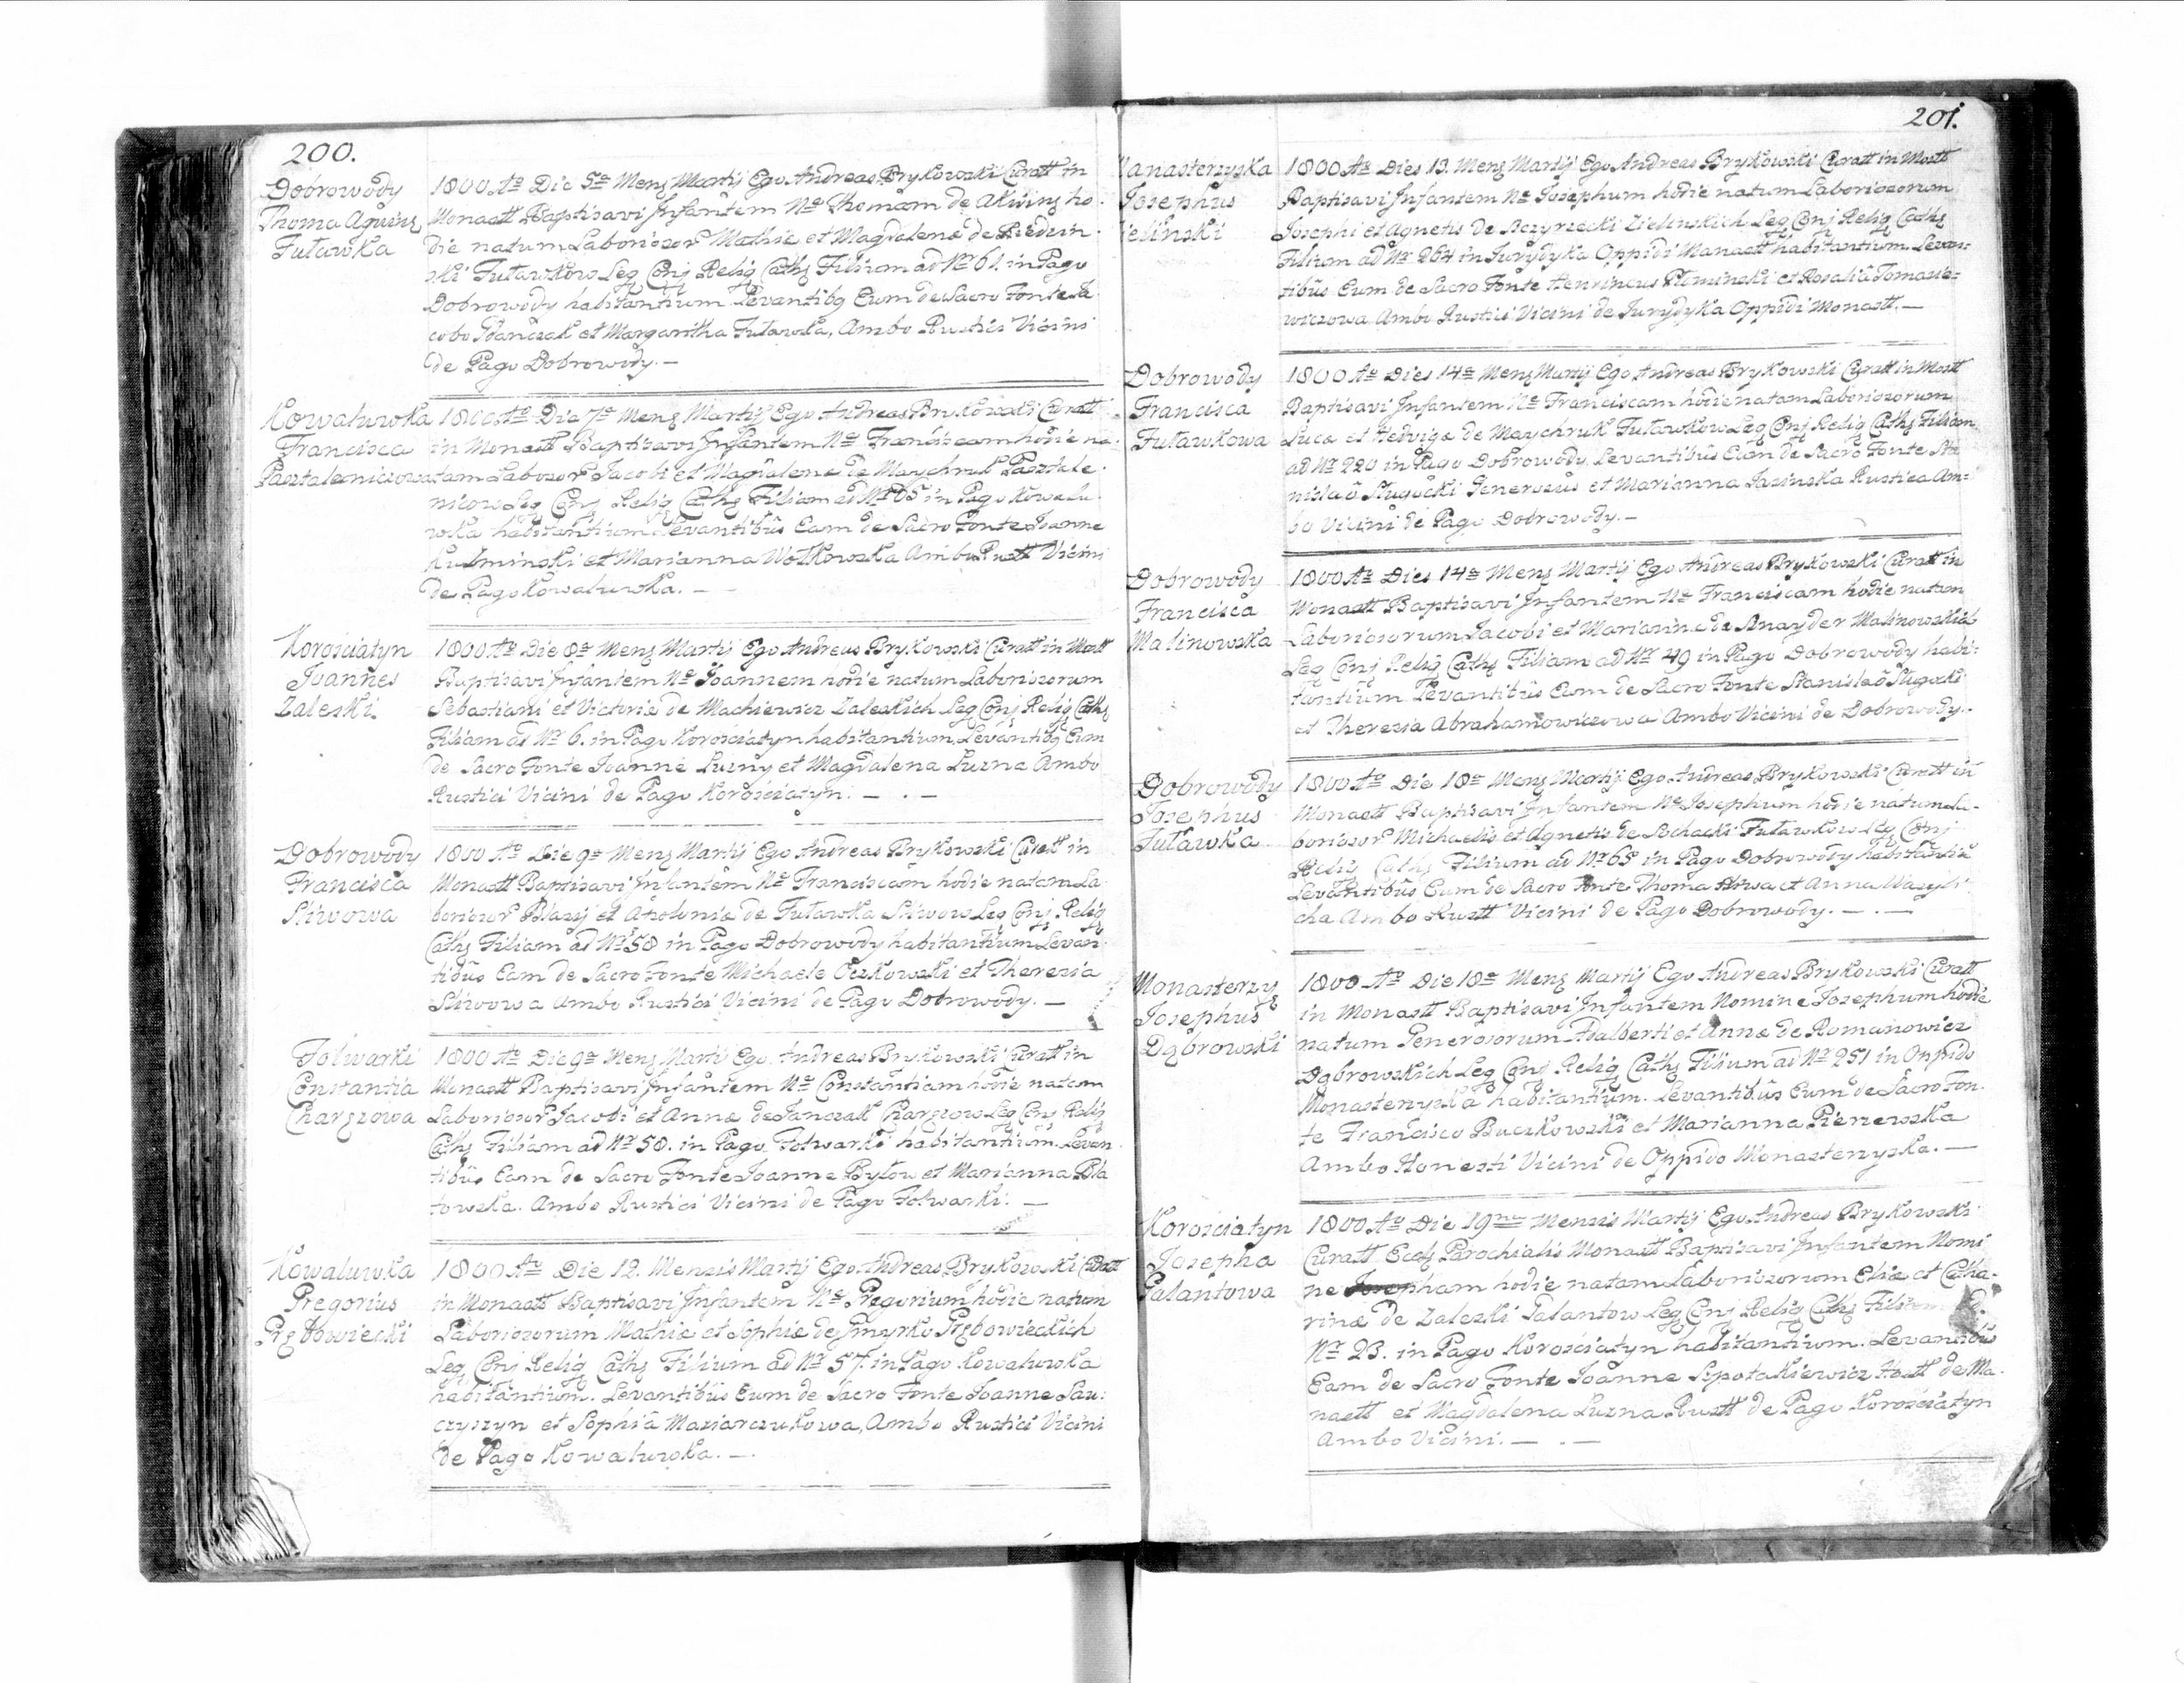 200.
Dobrowody
Thoma Aquins
Futawka
1800 Ao Die 5a Mens Martij Ego Andreas Brykowski Curatt in
Monastt Baptisavi Infantem Ne Thomam de Akwins ho-
die natum Laboriosor Mathiæ et Magdalenæ de
Futawkow Leg Conj Relig Caths Filium ad Nr 61. in Pago
Dobrowody habitantium Levantibq Eum de Sacro Fonte Ja-
cobo Iwanczak et Margaritha Futawka, Ambo Rustici Vicini
de Pago Dobrowody. —
Kowaluwka
Francisca
1800 Ao Die 7a Mens Martij Ego Andreas Brykowski Curatt
in Monastt Baptisavi Infantem Ne Franciscam hodie na-
tam Laborior Jacobi et Magdalenæ de Maychruk Pasztale-
nicow Leg Conj Relig Caths Filiam ad Nr 65 in Pago Kowalu-
wka habitantium Levantibûs Eam de Sacro Fonte Joanne
Kuzminski et Marianna Wołkowska Ambo Rustt Vicini
de Pago Kowaluwka. —
Korosciatyn
Joannes
Zaleski.
1800 Ao Die 8a Mens Martij Ego Andreas Brykowski Curatt in Mostt
Baptisavi Infantem Ne Joannem hodie natum Laboriosorum
Sebastiani et Victoriæ de Machiewicz Zaleskich Leg Conj Relig Caths
Filium ad Nr 6. in Pago Korosciatyn habitantium, Levantibq Eum
de Sacro Fonte Joanne Luzny et Magdalena Luzna Ambo
Rustici Vicini de Pago Korosciatyn. — . —
Dobrowody
Francisca
Sliwowa
1800 Ao Die 9a Mens Martij Ego Andreas Brykowski Curatt in
Monastt Baptisavi Infantem Ne Franciscam hodie natam La-
boriosor Blasij et Apoloniæ de Futawka Sliwow Leg Conj Relig
Caths Filiam ad Nr 58 in Pago Dobrowody habitantium Levan-
tibûs Eam de Sacro Fonte Michaele Oczkowski et Theresia
Sliwowa Ambo Rustici Vicini de Pago Dobrowody. —
Folwarki
Constantia
Chargzowa
1800 Ao Die 9a Mens Martij Ego Andreas Brykowski Curatt in
Monastt Baptisavi Infantem Ne Constantiam hodie natam
Laboriosor Jacobi et Annæ de Janczak Chargzow Leg Conj Relig
Caths Filiam ad Nr 50. in Pago Folwarki habitantium. Levan-
tibûs Eam de Sacro Fonte Joanne Byłow et Marianna Bla
towska. Ambo Rustici Vicini de Pago Folwarki. —
Kowaluwka
Gregorius
Grębowiecki
1800 Ao Die 12. Mensis Martij Ego Andreas Brykowski Curatt
in Monastt Baptisavi Infantem Ne Gregorium hodie natum
Laboriosorum Mathiæ et Sophiæ de Gmyrko Grębowieckich
Leg Conj Relig Caths Filium ad Nr 57. in Pago Kowaluwka
habitantium. Levantibûs Eum de Sacro Fonte Joanne Sau-
czyszyn et Sophiâ Maziarczukowa, Ambo Rustici Vicini
de Pago Kowaluwka. —.
201.
anasterzyska
Josephus
ielinski
1800 Ao Dies 13. Mens Martij Ego Andreas Brykowski Curatt in Mostt
Baptisavi Infantem Ne Josephum hodie natum Laboriosorum
Josephi et Agnetis de Sczyrzecki Zielinskich Leg Conj Relig Caths
Filium ad Nr 264 in Jurydyka Oppidi Monastt habitantium Levan-
tibûs Eum de Sacro Fonte Henricus Pleminski et Rosaliâ Tomasie-
wiczowa Ambo Rustici Vicini de Jurydyka Oppidi Monastt. —
Dobrowody
Francisca
Futawkowa
1800 Ao Dies 14a Mens Martij Ego Andreas Brykowski Curatt in Mostt
Baptisavi Infantem Ne Franciscam hodie natam Laboriosorum
Lucæ et Hedvigæ de Maychruk Futawkow Leg Conj Relig Caths Filiam
ad Nr 220 in Pago Dobrowody Levantibûs Eam de Sacro Fonte Sta-
nislaô Sługocki Generosus et Marianna Jasinska Rustica Am-
bo Vicini de Pago Dobrowody. —
Dobrowody
Francisca
Malinowska
1800 Ao Dies 14a Mens Martij Ego Andreas Brykowski Curatt in
Monastt Baptisavi Infantem Ne Franciscam hodie natam
Laboriosorum Jacobi et Mariannæ de Snayder Malinowskich
Leg Conj Relig Caths Filiam ad Nr 49 in Pago Dobrowody habi-
tantium Levantibûs Eam de Sacro Fonte Stanislaô Sługocki
et Theresia Abrahamowiczowa Ambo Vicini de Dobrowody.
Dobrowody
Josephus
Futawka
1800 Ao Die 18a Mens Martij Ego Andreas Brykowski Curatt in
Monastt Baptisavi Infantem Ne Josephum hodie natum La-
boriosor Michaelis et Agnetis de Sochacki Futawkow Leg Conj
Relig Caths Filium ad Nr 65 in Pago Dobrowody habitantiu
Levantibûs Eum de Sacro Fonte Thoma Sliwa et Anna Wasyli-
cha Ambo Rustt Vicini de Pago Dobrowody. — . —
Monasterzy
Josephus
Dąbrowski
1800 Ao Die 18a Mens Martij Ego Andreas Brykowski Curatt
in Monastt Baptisavi Infantem Nomine Josephum hodie
natum Generosorum Adalberti et Annæ de Romanowicz
Dąbrowskich Leg Conj Relig Caths Filium ad Nr 251 in Oppido
Monasterzyska habitantium. Levantibûs Eum de Sacro Fon-
te Francisco Buczkowski et Marianna Pieniewska
Ambo Honesti Vicini de Oppido Monasterzyska. —
Korosciatyn
Josepha
Galantowa
1800 Ao Die 19na Mensis Martij Ego Andreas Brykowski
Curatt Eccls Parochialis Monastt Baptisavi Infantem Nomi
ne Josepham hodie natam Laboriosorum Eliæ et Catha-
rinæ de Zaleski Galantow Leg Conj Relig Caths Filiam
Nr 23. in Pago Korosciatyn habitantium. Levantibûs
Eam de Sacro Fonte Joanne Szpotakiewicz Hostt de Mo-
nastt et Magdalena Luzna Rustt de Pago Korosciatyn
Ambo Vicini. — . —